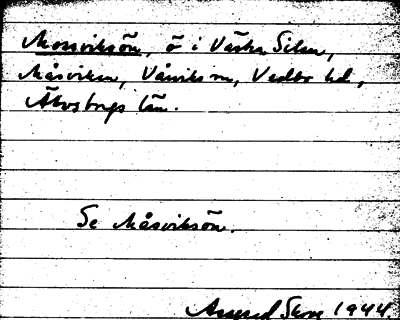 Mossviksön, ö i Västra Silen,
Måsviken, Vårviks sn, Vedbo hd,
Älvsborgs län.
Se Måsviksön.
1944.